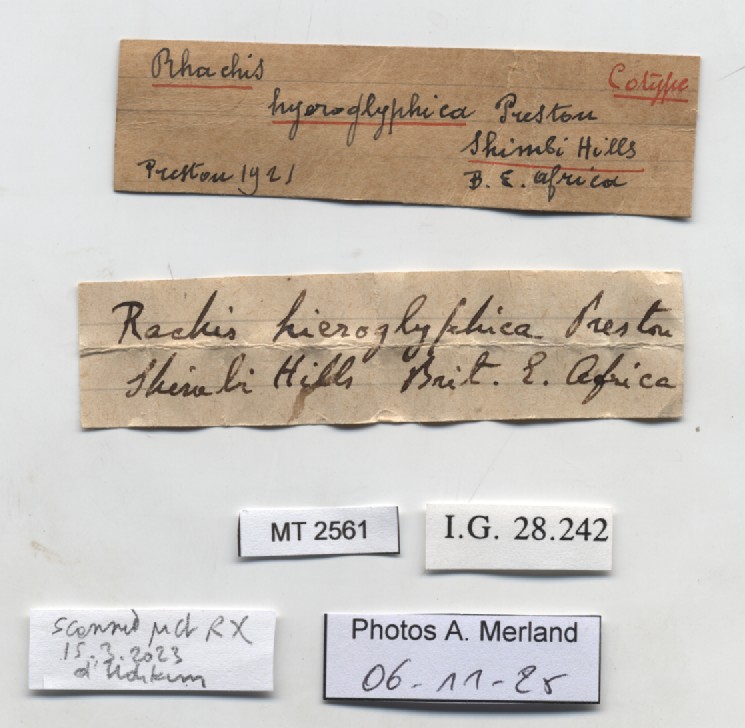 Rhachis
Cotype
hyeroglyphica Preston
Shimbi Hills
Preston 1921
B. E. Africa
Rachis hieroglyphica Preston
Shimbi Hills Brit. E. Africa
MT 2561
I.G. 28.242
scanned µct RX
15.3.2023
Photos A. Merland
06-11-25